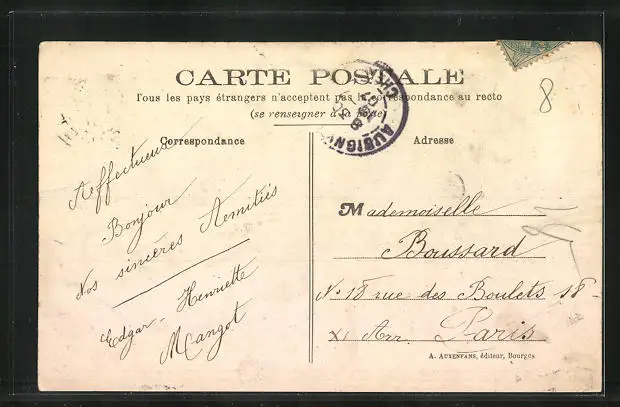 CARTE POSTALE
Tous les pays étrangers n'acceptent pas la correspondance au recto
(se renseigner à la Poste)
AUBIGNY
CHER
Correspondance
Affectueux
Bonjour
Nos sincères Aemitiés
Edgar - Henriette
Mangot
Adresse
8
Mademoiselle
Boussard
No 18 rue des Boulets 18-
XI Arr. Paris
A. AUXENFANS, éditeur, Bourges